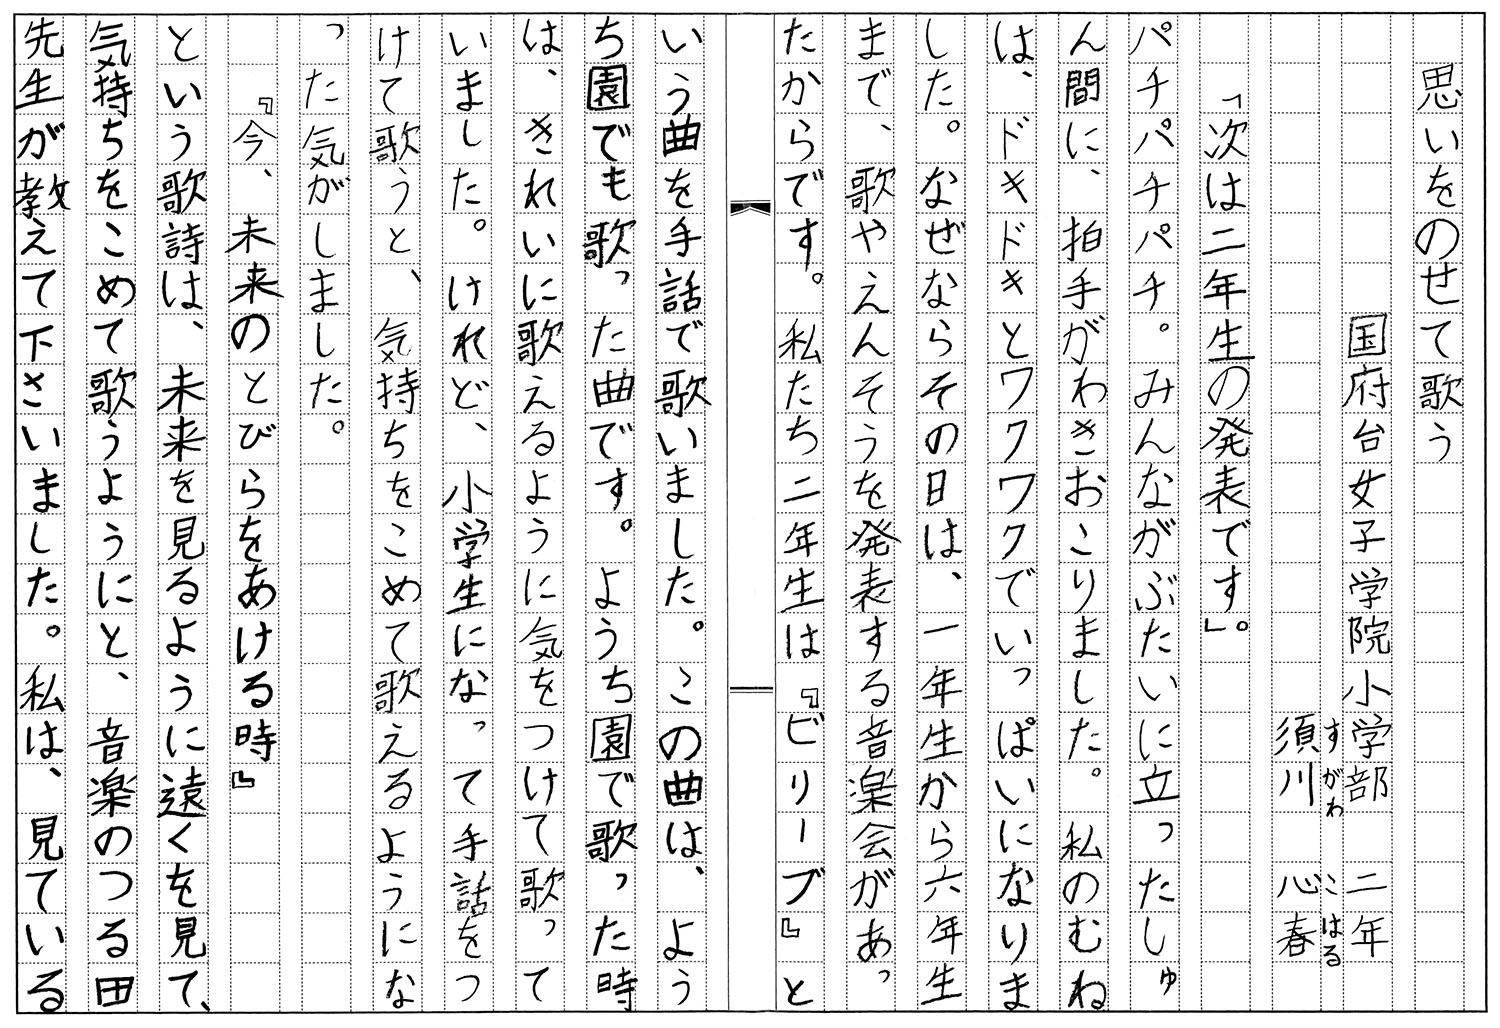 思いをのせて歌う
国府台女子学院小学部 二年
須川 心春
すがわ こはる
「次は二年生の発表です」。
パチパチパチパチ。みんながぶたいに立ったしゅ
ん間に、拍手がわきおこりました。私のむね
は、ドキドキとワクワクでいっぱいになりま
した。なぜならその日は、一年生から六年生
まで、歌やえんそうを発表する音楽会があっ
たからです。私たち二年生は『ビリーブ』と
いう曲を手話で歌いました。この曲は、よう
ち園でも歌った曲です。ようち園で歌った時
は、きれいに歌えるように気をつけて歌って
いました。けれど、小学生になって手話をつ
けて歌うと、気持ちをこめて歌えるようにな
った気がしました。
『今、未来のとびらをあける時』
という歌詩は、未来を見るように遠くを見て、
気持ちをこめて歌うようにと、音楽のつる田
先生が教えて下さいました。私は、見ている